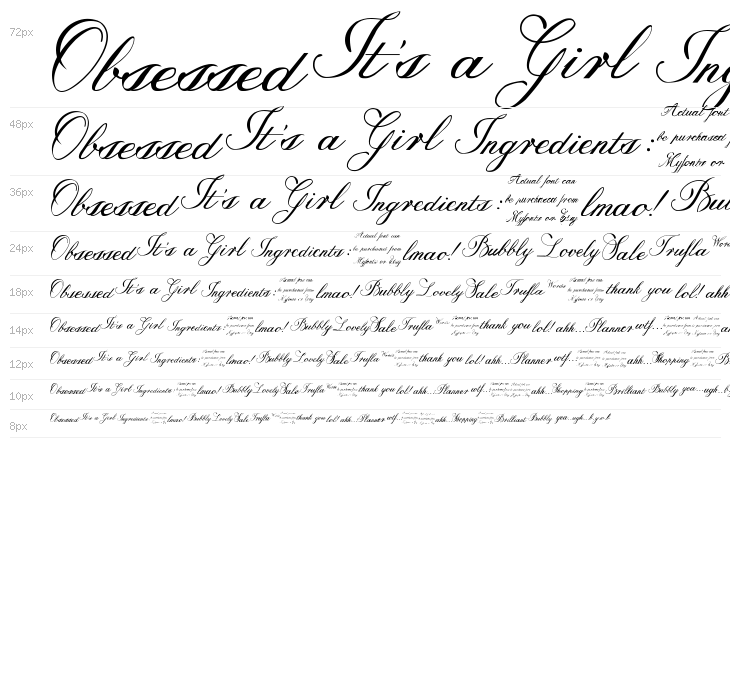 72px Obsessed It's a Girl Ing
48px Obsessed It's a Girl Ingredients : Actual font be purchased Myfonts or
36px Obsessed It's a Girl Ingredients : Actual font can be purchased from Myfonts or Etsy lmao! Bu
24px Obsessed It's a Girl Ingredients : Actual font can be purchased from Myfonts or Etsy lmao! Bubbly Lovely Sale Trufla Wor
18px Obsessed It's a Girl Ingredients : Actual font can be purchased from Myfonts or Etsy lmao! Bubbly Lovely Sale Trufla Words thank you lol! ahh
14px Obsessed It's a Girl Ingredients : lmao! Bubbly Lovely Sale Trufla thank you lol! ahh... Planner wtf...
12px Obsessed It's a Girl Ingredients : lmao! Bubbly Lovely Sale Trufla thank you lol! ahh... Planner wtf... ahh... Shopping B
10px Obsessed It's a Girl Ingredients : lmao! Bubbly Lovely Sale Trufla thank you lol! ahh... Planner wtf... ahh... Shopping Brilliant Bubbly yea...ugh...
8px Obsessed It's a Girl Ingredients : lmao! Bubbly Lovely Sale Trufla thank you lol! ahh... Planner wtf... ahh... Shopping Brilliant Bubbly yea...ugh...